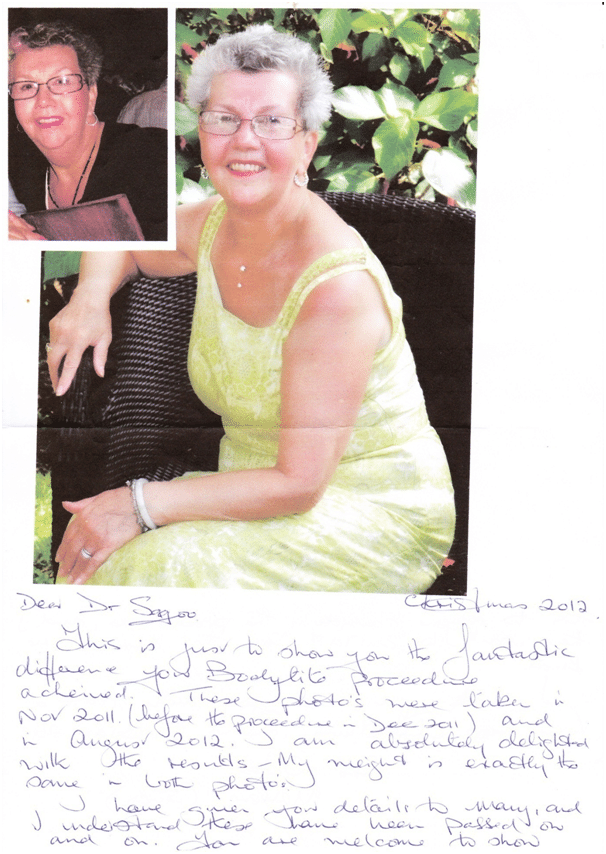 Dear Dr Sagoo Christmas 2012
This is just to show you the fantastic
difference your Bodylite proceedure
acheived. These photo's were taken in
Nov 2011 (before the proceedure in Dec 2011) and
in August 2012. I am absolutely delighted
with the results - My weight is exactly the
same in both photo's.
I have given your details to many, and
I understand these have been passed on
and on. You are welcome to show